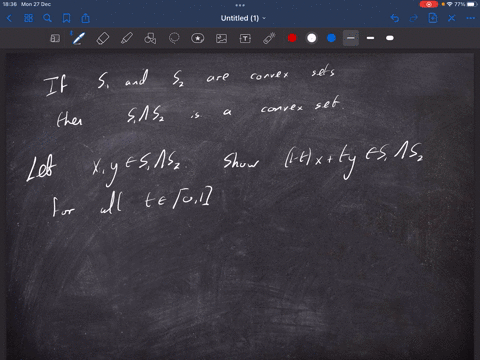 18:36 Mon 27 Dec
77%
Untitled (1)
If S₁ and S₂ are convex sets
then S₁∩S₂ is a convex set.
Let x, y ∈ S₁∩S₂. Show (1-t)x + ty ∈ S₁∩S₂
for all t ∈ [0,1]